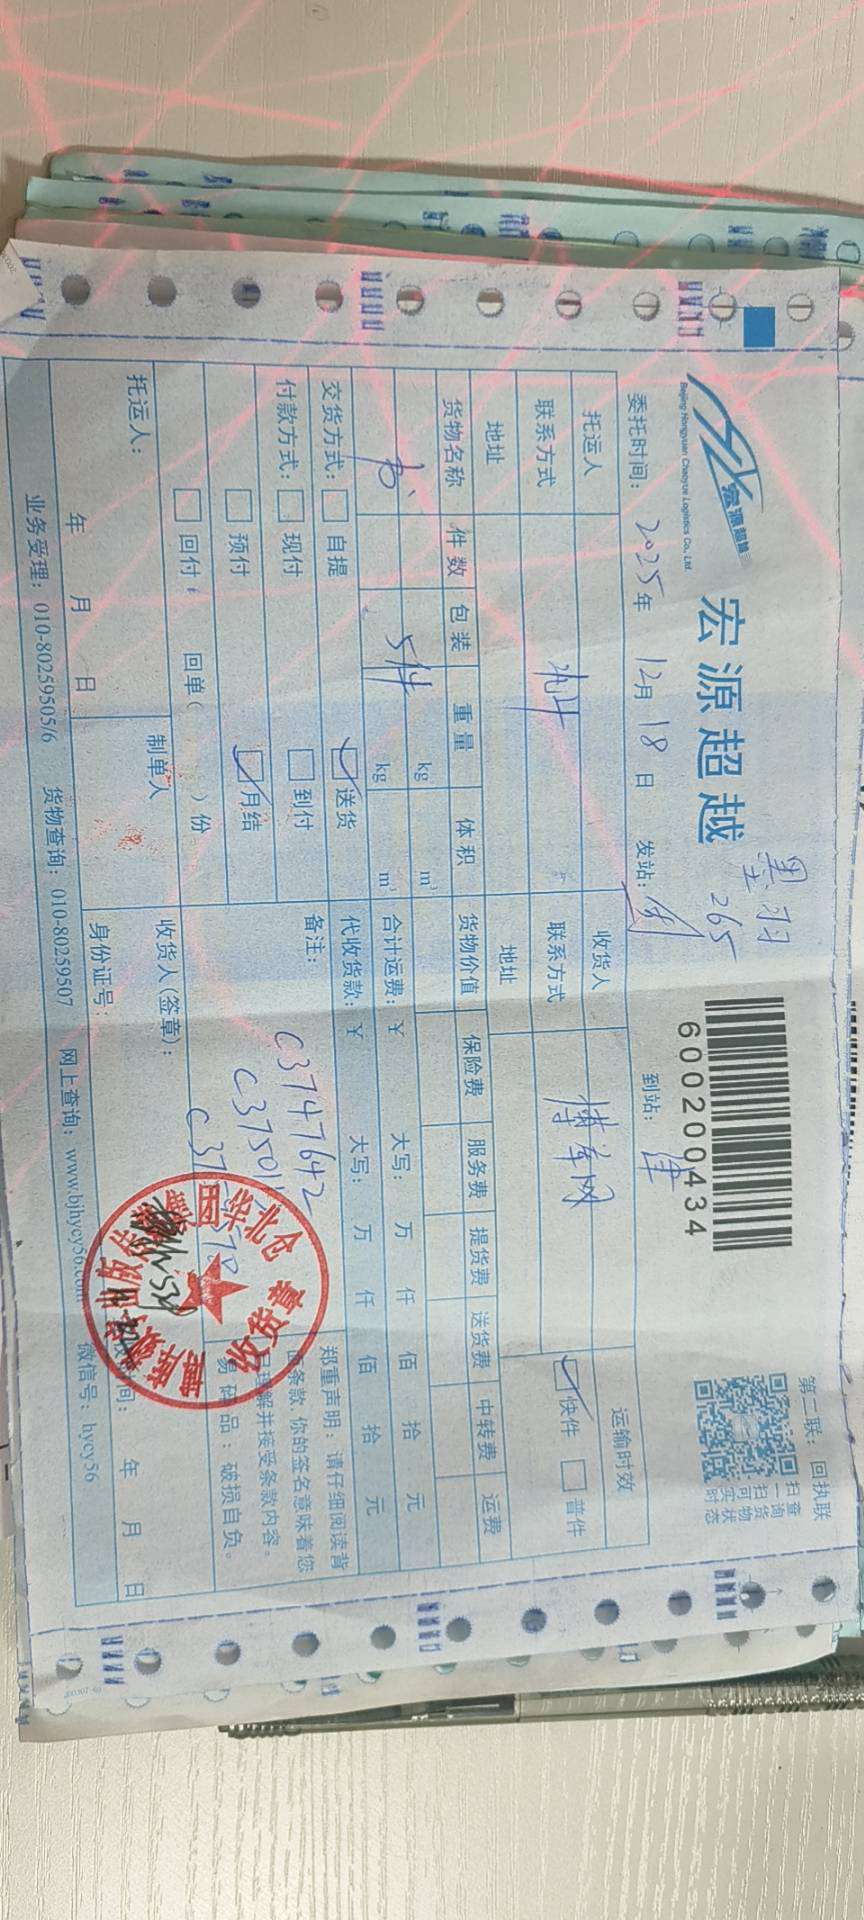 宏源超越
Beijing Hongyuan Chaoyue Logistics Co., Ltd.
宏源超越
墨羽
265
600200434
第二联：回执联
扫一扫可实时
查询货物状态
委托时间：2025年12月18日 发站： 到站：津
托运人 收货人 运输时效
联系方式 联系方式 博车网 快件 普件
地址 地址
货物名称 件数 包装 重量 体积 货物价值 保险费 服务费 提货费 送货费 中转费 运费
kg m³
书 5件 kg m³
合计运费：¥ 大写： 万 仟 佰 拾 元
交货方式： 自提 送货 代收货款：¥ 大写： 万 仟 佰 拾 元
付款方式： 现付 到付 备注：
预付 月结
回付 回单（ ）份
C3747642
郑重声明：请仔细阅读背
面条款 你的签名意味着您
已理解并接受条款内容。
易碎品：破损自负。
托运人： 制单人 收货人(签章)：
年 月 日 身份证号： 时间： 年 月 日
收货章
华北仓
业务受理：010-80259505/6 货物查询：010-80259507 网上查询：www.bjhycy56.com 微信号：hycy56